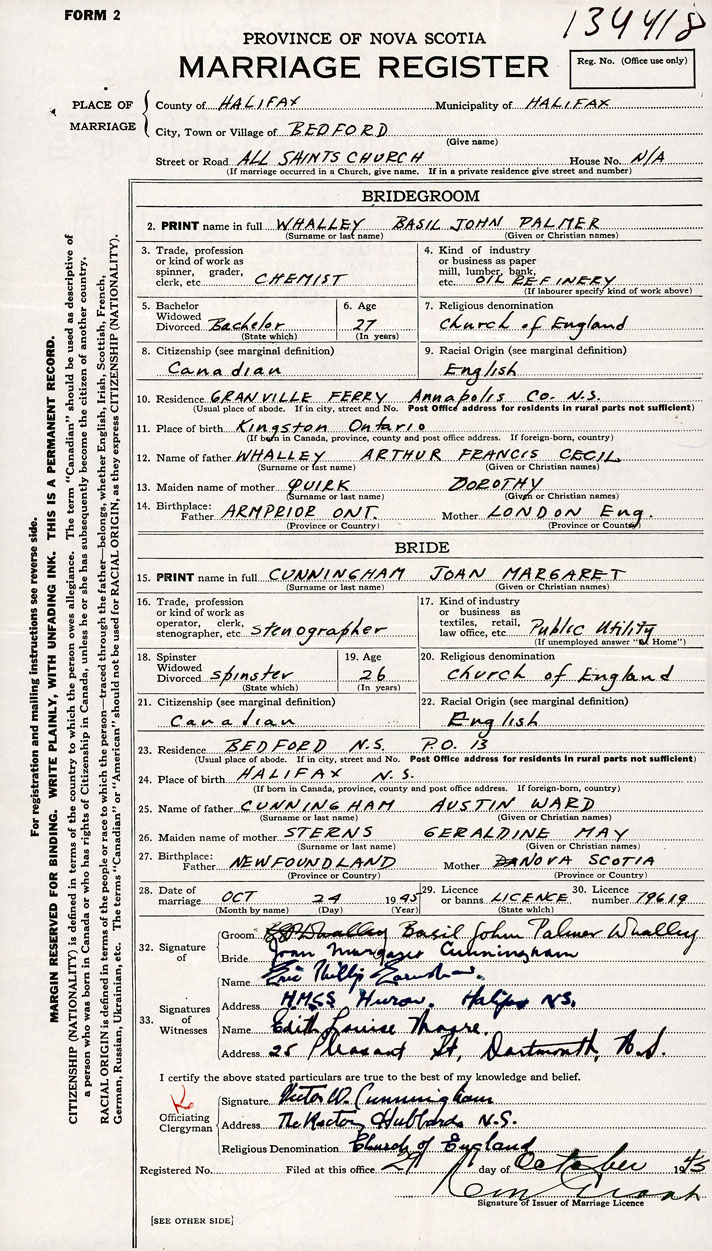 FORM 2
134418
PROVINCE OF NOVA SCOTIA
MARRIAGE REGISTER
Reg. No. (Office use only)
PLACE OF MARRIAGE
County of HALIFAX Municipality of HALIFAX
City, Town or Village of BEDFORD
(Give name)
Street or Road ALL SAINTS CHURCH House No. N/A
(If marriage occurred in a Church, give name. If in a private residence give street and number)
BRIDEGROOM
2. PRINT name in full WHALLEY BASIL JOHN PALMER
(Surname or last name) (Given or Christian names)
3. Trade, profession
or kind of work as
spinner, grader,
clerk, etc. CHEMIST
4. Kind of industry
or business as paper
mill, lumber, bank,
etc. OIL REFINERY
(If labourer specify kind of work above)
5. Bachelor
Widowed
Divorced Bachelor
(State which)
6. Age
27
(In years)
7. Religious denomination
Church of England
8. Citizenship (see marginal definition)
Canadian
9. Racial Origin (see marginal definition)
English
10. Residence GRANVILLE FERRY Annapolis Co. N.S.
(Usual place of abode. If in city, street and No. Post Office address for residents in rural parts not sufficient)
11. Place of birth Kingston Ontario
(If born in Canada, province, county and post office address. If foreign-born, country)
12. Name of father WHALLEY ARTHUR FRANCIS CECIL
(Surname or last name) (Given or Christian names)
13. Maiden name of mother QUIRK DOROTHY
(Surname or last name) (Given or Christian names)
14. Birthplace:
Father ARMPRIOR ONT. Mother LONDON Eng.
(Province or Country) (Province or Country)
BRIDE
15. PRINT name in full CUNNINGHAM JOAN MARGARET
(Surname or last name) (Given or Christian names)
16. Trade, profession
or kind of work as
operator, clerk,
stenographer, etc. stenographer
17. Kind of industry
or business as
textiles, retail,
law office, etc. Public Utility
(If unemployed answer "At Home")
18. Spinster
Widowed
Divorced Spinster
(State which)
19. Age
26
(In years)
20. Religious denomination
Church of England
21. Citizenship (see marginal definition)
Canadian
22. Racial Origin (see marginal definition)
English
23. Residence BEDFORD N.S. P.O. 13
(Usual place of abode. If in city, street and No. Post Office address for residents in rural parts not sufficient)
24. Place of birth HALIFAX N.S.
(If born in Canada, province, county and post office address. If foreign-born, country)
25. Name of father CUNNINGHAM AUSTIN WARD
(Surname or last name) (Given or Christian names)
26. Maiden name of mother STERNS GERALDINE MAY
(Surname or last name) (Given or Christian names)
27. Birthplace:
Father NEWFOUNDLAND Mother NOVA SCOTIA
(Province or Country) (Province or Country)
28. Date of marriage OCT 24 1945
(Month by name) (Day) (Year)
29. Licence or banns LICENCE
(State which)
30. Licence number 79619
32. Signature of
Groom Basil John Palmer Whalley
Bride Joan Margaret Cunningham
33. Signatures of Witnesses
Name Eric Phillip
Address H.M.C.S Huron. Halifax N.S.
Name Edith Louise
Address 25 Pleasant St, Dartmouth, N.S.
I certify the above stated particulars are true to the best of my knowledge and belief.
Officiating Clergyman
Signature Victor W. Cunningham
Address The Rectory Hubbards N.S.
Religious Denomination Church of England
Registered No. Filed at this office 29 day of October 1945
Signature of Issuer of Marriage Licence
[SEE OTHER SIDE]
For registration and mailing instructions see reverse side.
MARGIN RESERVED FOR BINDING. WRITE PLAINLY, WITH UNFADING INK. THIS IS A PERMANENT RECORD.
CITIZENSHIP (NATIONALITY) is defined in terms of the country to which the person owes allegiance. The term "Canadian" should be used as descriptive of
a person who was born in Canada or who has rights of Citizenship in Canada, unless he or she has subsequently become the citizen of another country.
RACIAL ORIGIN is defined in terms of the people or race to which the person—traced through the father—belongs, whether English, Irish, Scottish, French,
German, Russian, Ukrainian, etc. The terms "Canadian" or "American" should not be used for RACIAL ORIGIN, as they express CITIZENSHIP (NATIONALITY).